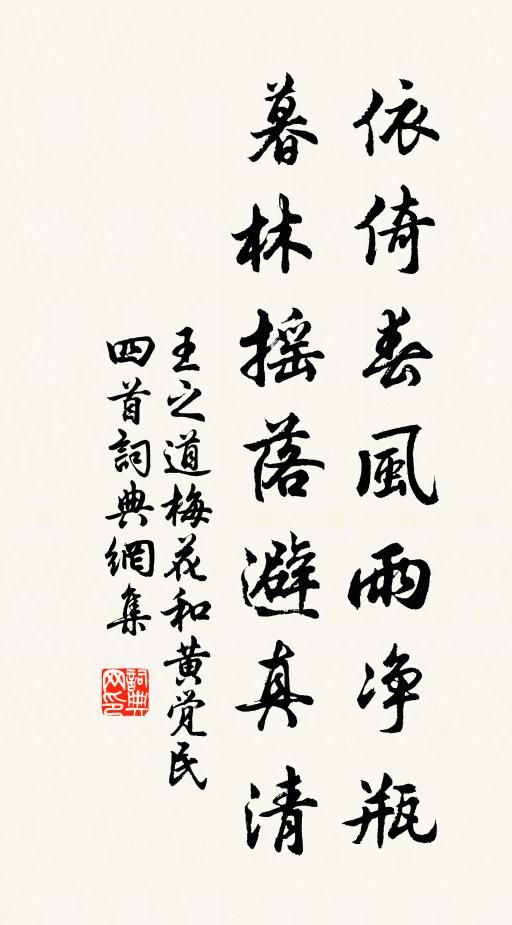 依倚春風兩净瓶
暮林搖落避真清
王之道梅花和黄觉民
四首詞典網集
詞典
网印